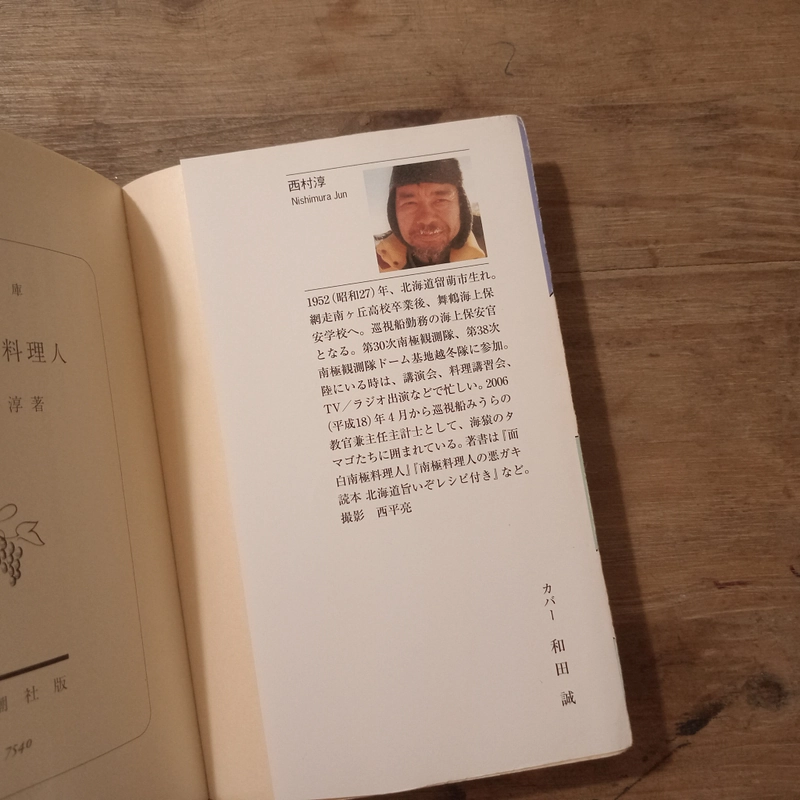 庫
料理人
淳著
潮社版
7540
西村淳
Nishimura Jun
1952(昭和27)年、北海道留萌市生れ。
網走南ヶ丘高校卒業後、舞鶴海上保
安学校へ。巡視船勤務の海上保安官
となる。第30次南極観測隊、第38次
南極観測隊ドーム基地越冬隊に参加。
陸にいる時は、講演会、料理講習会、
TV/ラジオ出演などで忙しい。2006
(平成18)年4月から巡視船みうらの
教官兼主任主計士として、海猿のタ
マゴたちに囲まれている。著書は『面
白南極料理人』『南極料理人の悪ガキ
読本 北海道旨いぞレシピ付き』など。
撮影 西平亮
カバー 和田 誠